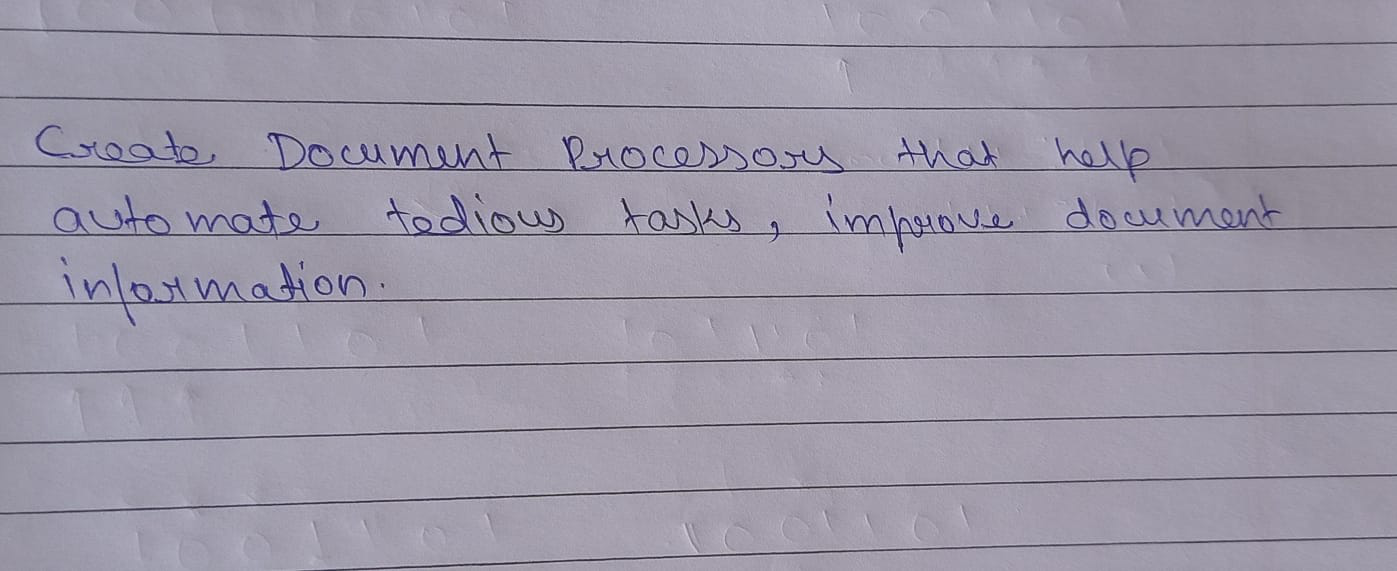 Create Document Processors that help
automate tedious tasks, improve document
information.